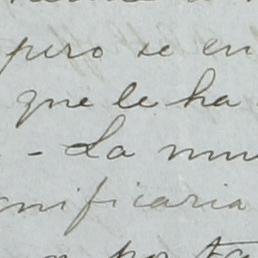 pero se en
que le ha
- La mu
nificaria